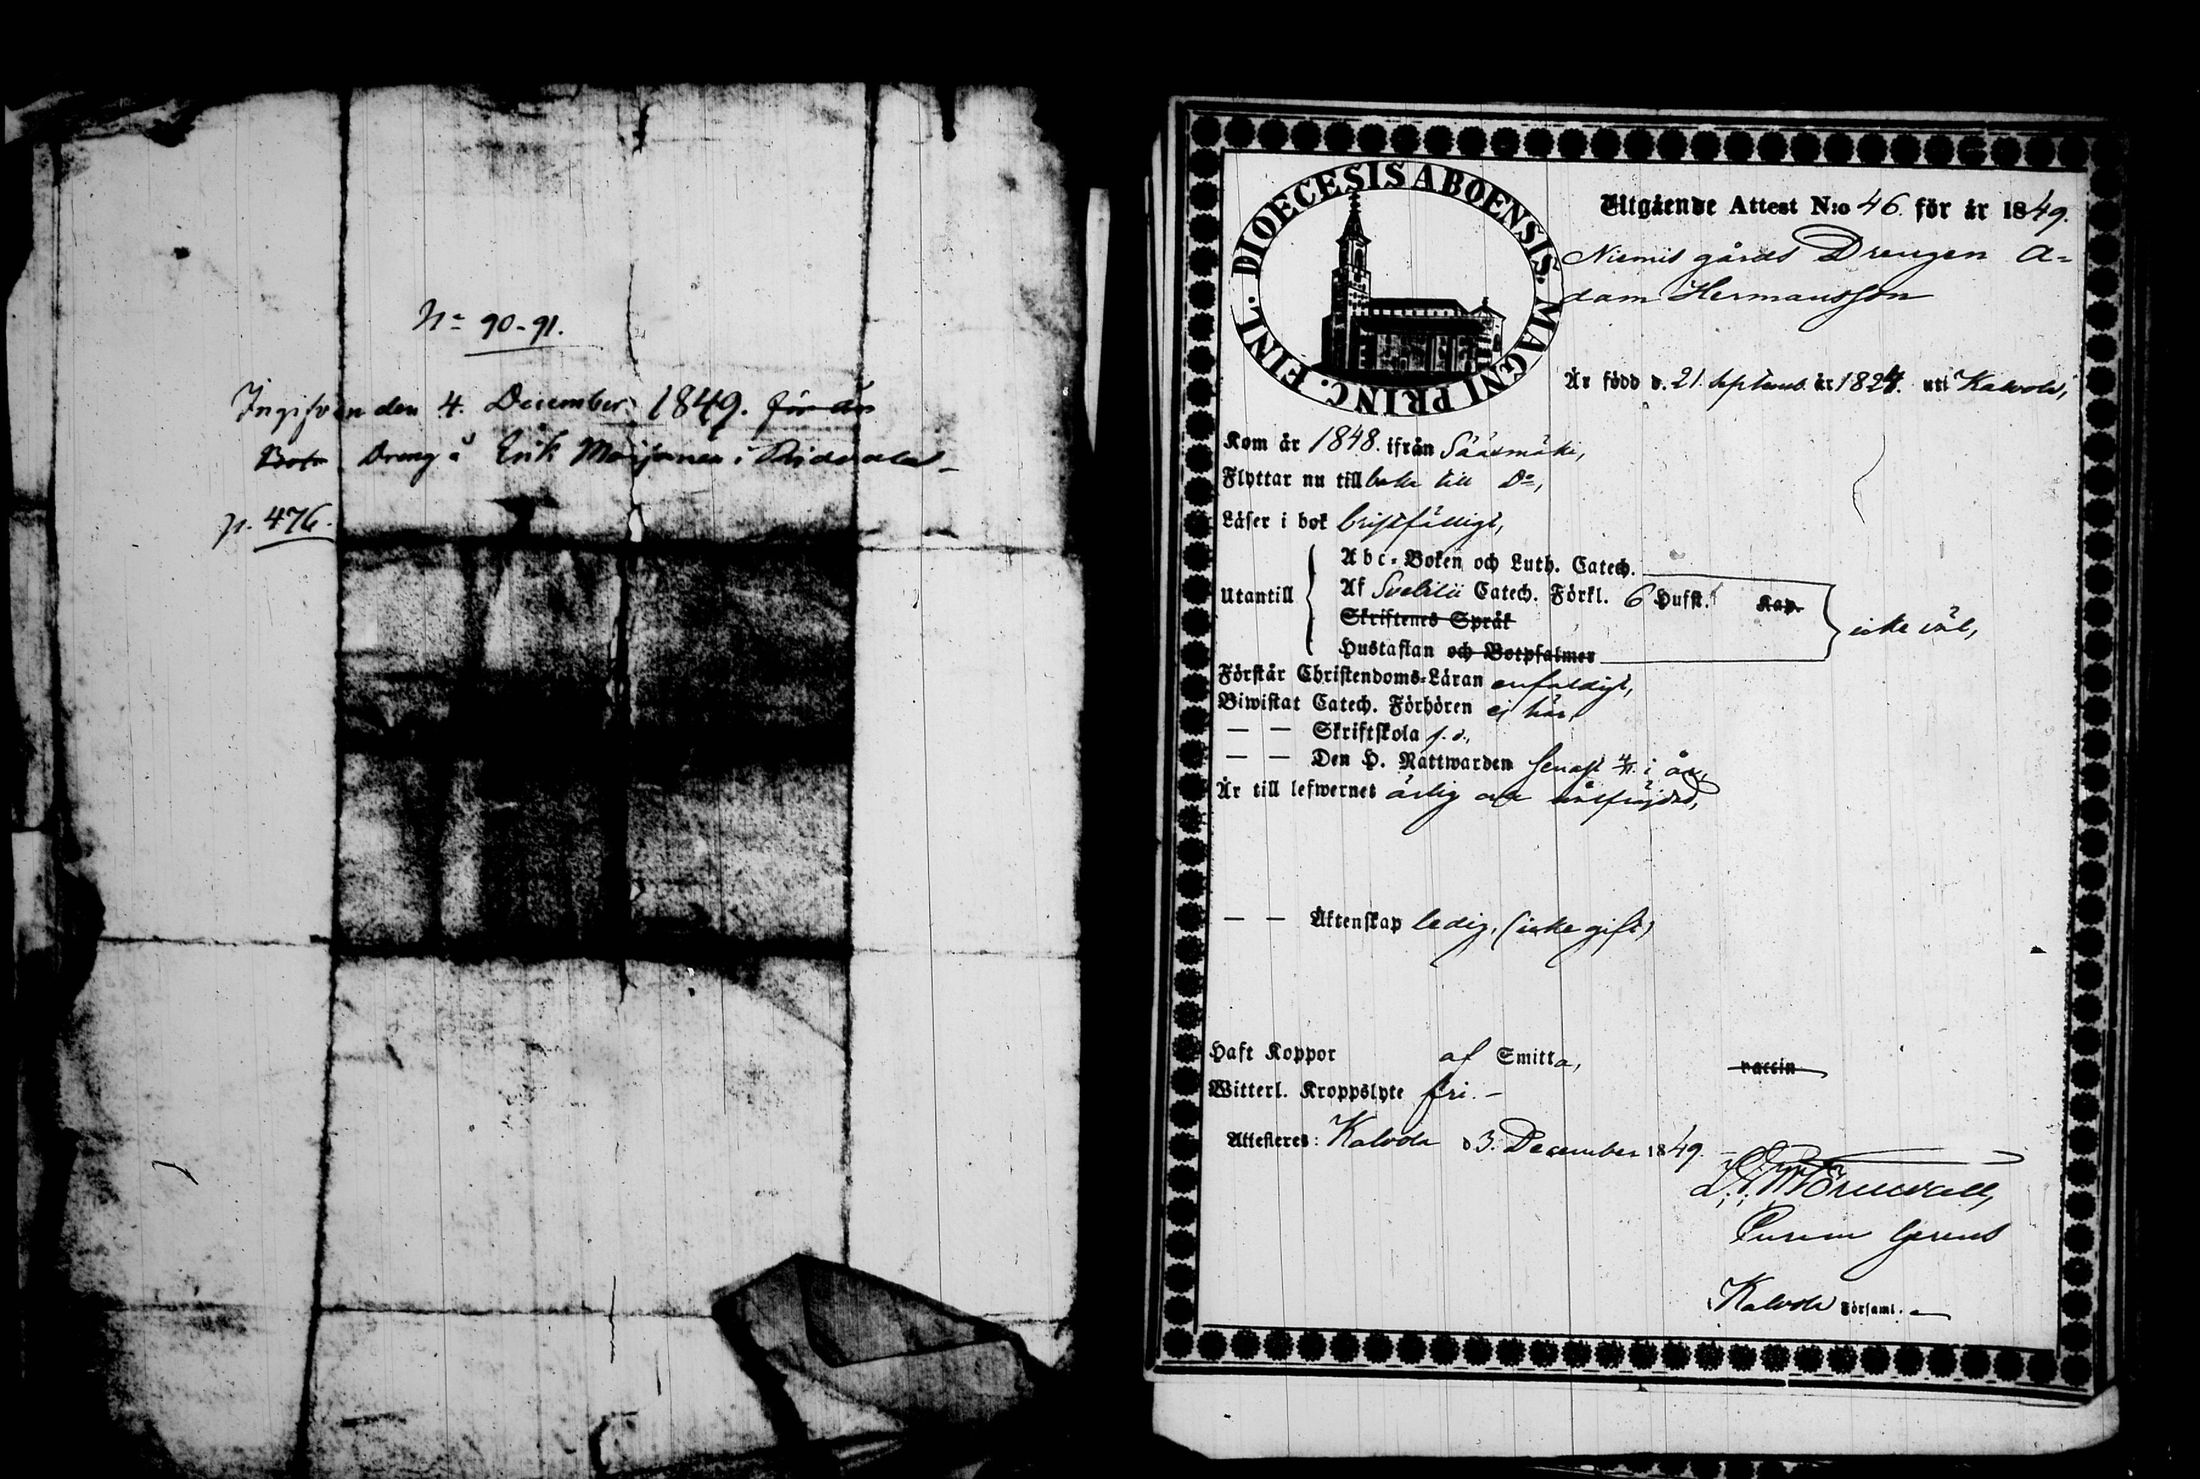 N:o 90-91.
Ingifven den 4. December 1849. för att
Dreng å Erik i
p. 476.
DIOECESIS ABOENSIS. MAGNI PRINC. FINL.
Utgående Attest N:o 46. för år 1849.
Niemis gårds Drengen A-
dam Hermansson
Är född d. 21. Septemb. år 1824. uti Kalvola,
Kom år 1848. ifrån Sääxmäki,
Flyttar nu tillbaka till D:o,
Läser i bok bristfälligt,
Utantill
Abc-Boken och Luth. Catech.
Af Svebilii Catech. Förkl. 6 Hufst. Kap.
Skriftenes Språk
Hustaflan och Botpsalmer
icke väl,
Förstår Christendoms-Läran enfaldigt,
Biwistat Catech. Förhören ej här,
— — Skriftskola f. d.,
— — Den H. Nattwarden senast i år,
Är till lefwernet ärlig och välfrejdad,
— — Äktenskap ledig, (icke gift)
Haft Koppor af Smitta, vaccin
Witterl. Kroppslyte fri. –
Attesteres: Kalvola d 3. December 1849.
Kalvola Församl.